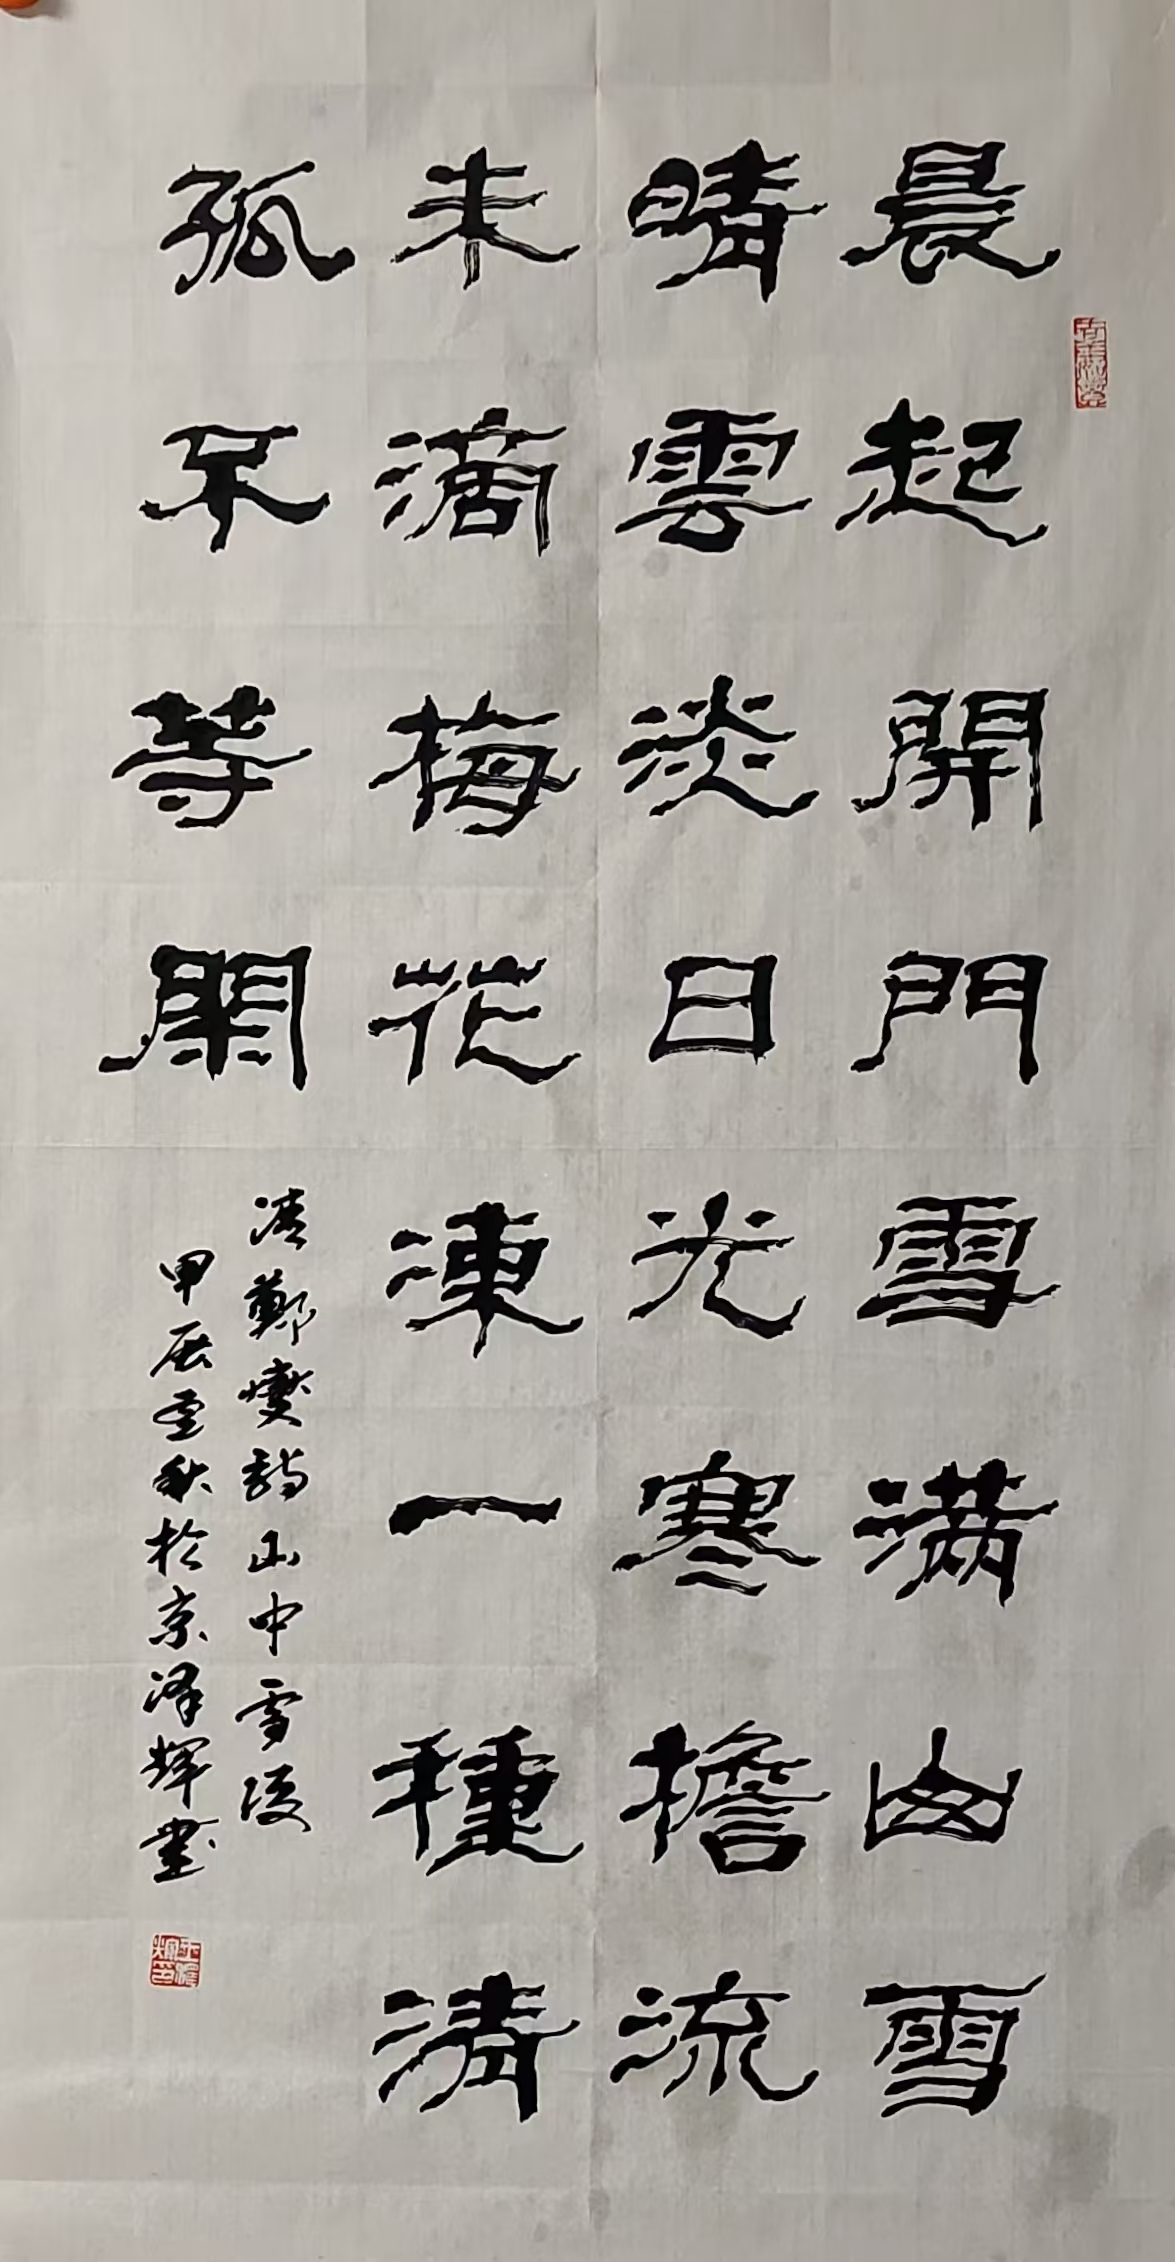 晨起開門雪滿山雪
晴雲淡日光寒檐流
未滴梅花凍一種清
孤不等閑
清鄭燮詩山中雪後
甲辰至秋於京澤輝書